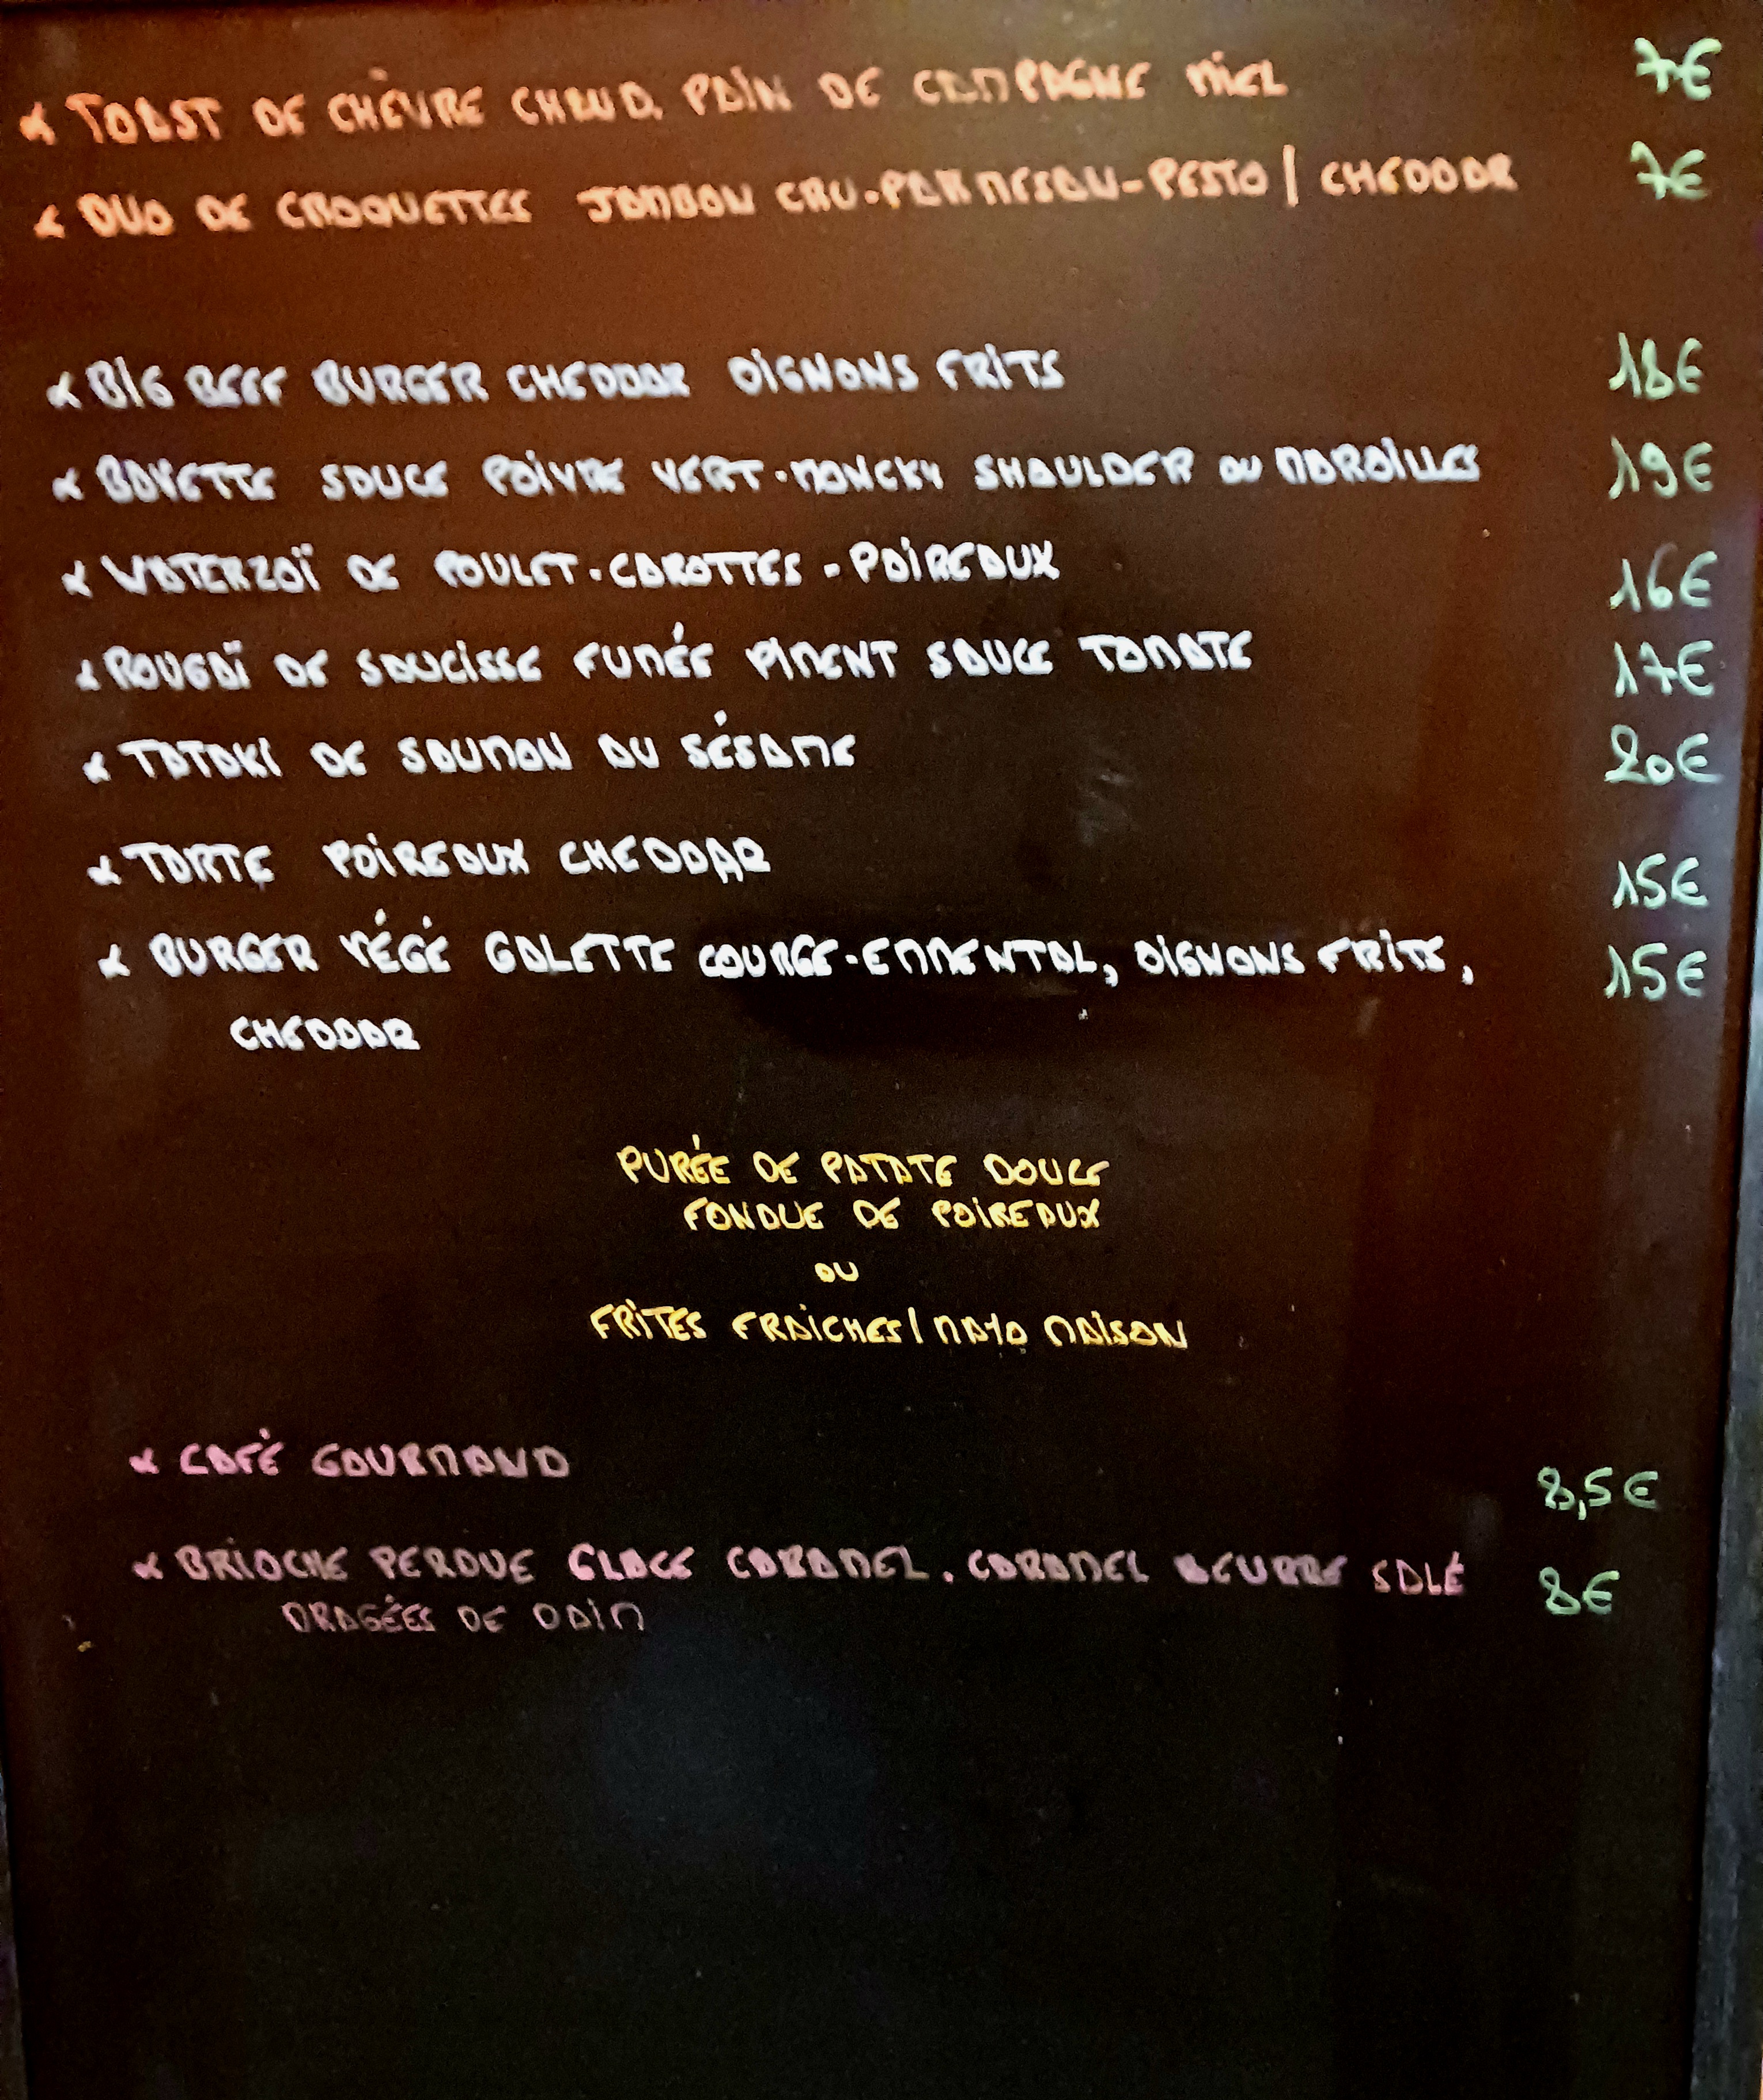 TOAST DE CHÈVRE CHAUD, PAIN DE CAMPAGNE MIEL 7€
DUO DE CROQUETTES JAMBON CRU-PARMESAN-PESTO | CHEDDAR 7€
BIG BEEF BURGER CHEDDAR OIGNONS FRITS 18€
BAVETTE SAUCE POIVRE VERT-MONCKY SHAULDER OU MAROILLES 19€
WATERZOÏ DE POULET-CAROTTES-POIREAUX 16€
ROUGAÏ DE SAUCISSE FUMÉE PIMENT SAUCE TOMATE 17€
TATAKI DE SAUMON AU SÉSAME 20€
TARTE POIREAUX CHEDDAR 15€
BURGER VÉGÉ GALETTE COURGE-EMMENTAL, OIGNONS FRITS, 15€
CHEDDAR
PURÉE DE PATATE DOUCE
FONDUE DE POIREAUX
OU
FRITES FRAICHES/MAYO MAISON
CAFÉ GOURMAND 8,5€
BRIOCHE PERDUE GLACE CARAMEL, CARAMEL BEURRE SALÉ 8€
DRAGÉES DE DAIM